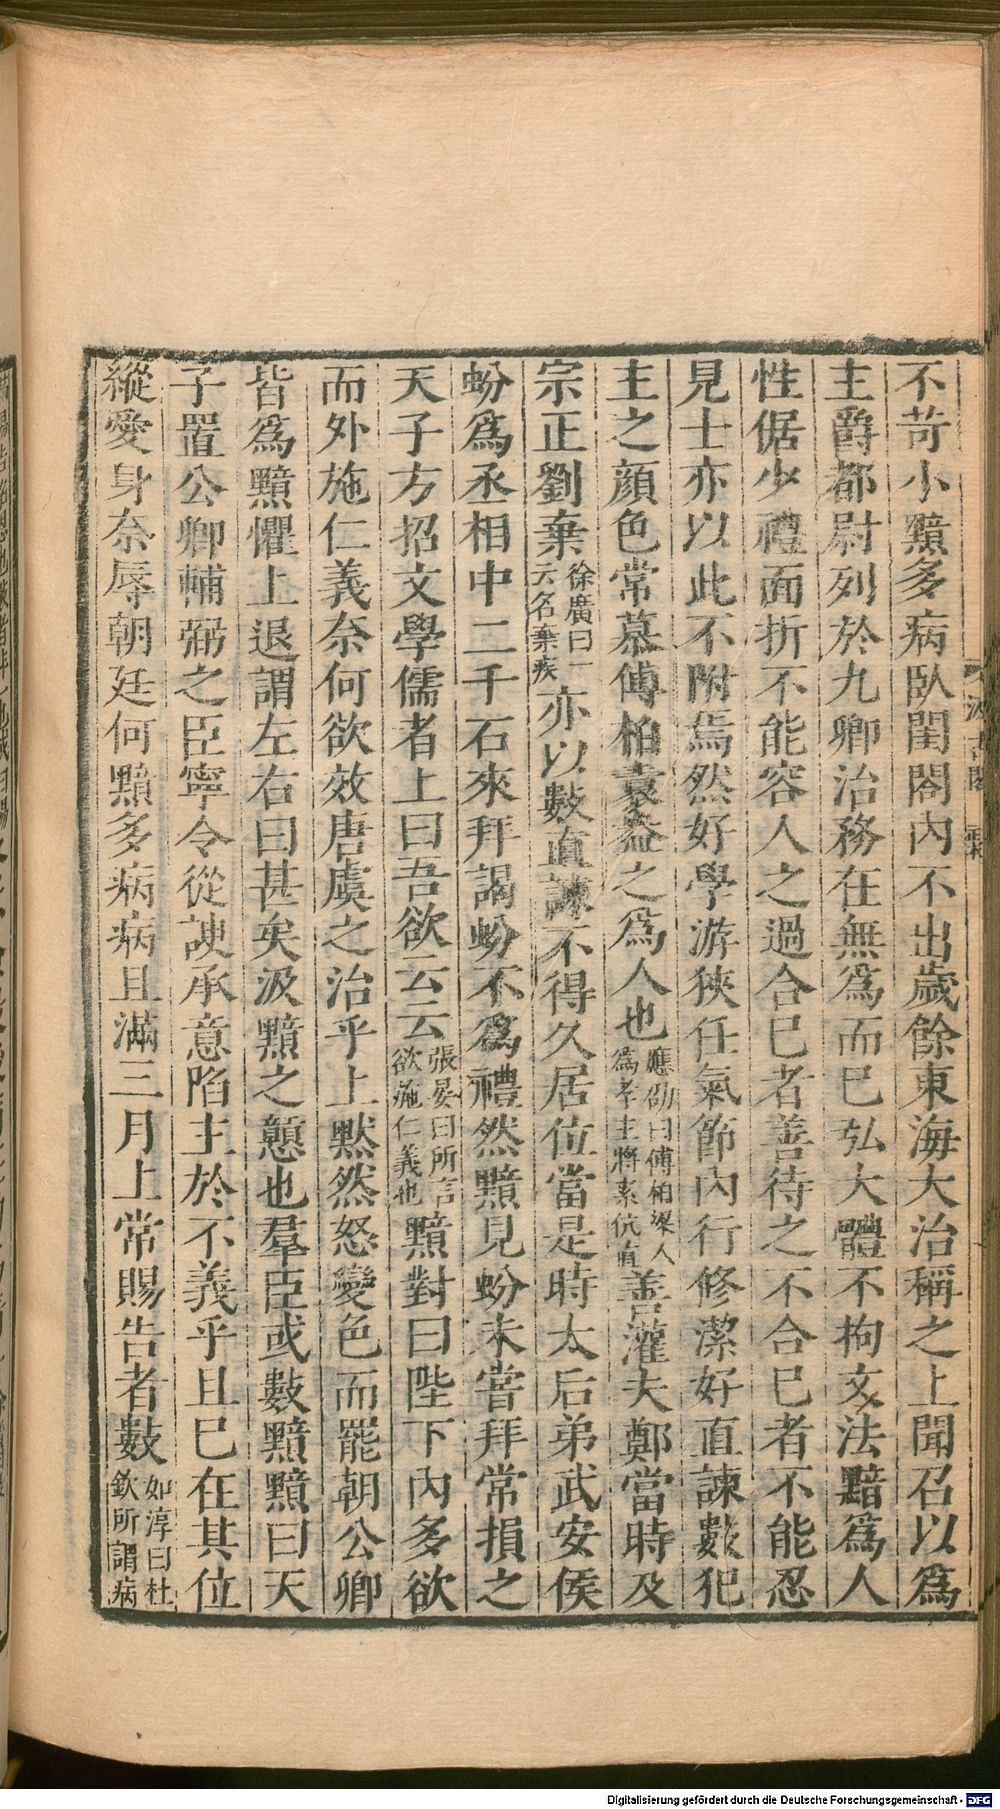 不苛小黯多病臥閨閤內不出歲餘東海大治稱之上聞召以爲
主爵都尉列於九卿治務在無爲而巳弘大體不拘文法黯爲人
性倨少禮面折不能容人之過合巳者善待之不合巳者不能忍
見士亦以此不附焉然好學游俠任氣節內行修潔好直諫數犯
主之顏色常慕傅柏袁盎之爲人也應劭曰傅柏梁人爲孝王將素伉直善灌夫鄭當時及
宗正劉棄徐廣曰一云名棄疾亦以數直諫不得久居位當是時太后弟武安侯
蚡爲丞相中二千石來拜謁蚡不爲禮然黯見蚡未嘗拜常損之
天子方招文學儒者上曰吾欲云云張晏曰所言欲施仁義也黯對曰陛下內多欲
而外施仁義奈何欲效唐虞之治乎上默然怒變色而罷朝公卿
皆爲黯懼上退謂左右曰甚矣汲黯之戇也羣臣或數黯黯曰天
子置公卿輔弼之臣寧令從諛承意陷主於不義乎且巳在其位
縱愛身奈辱朝廷何黯多病病且滿三月上常賜告者數如淳曰杜欽所謂病
汲古閣
Digitalisierung gefördert durch die Deutsche Forschungsgemeinschaft - DFG